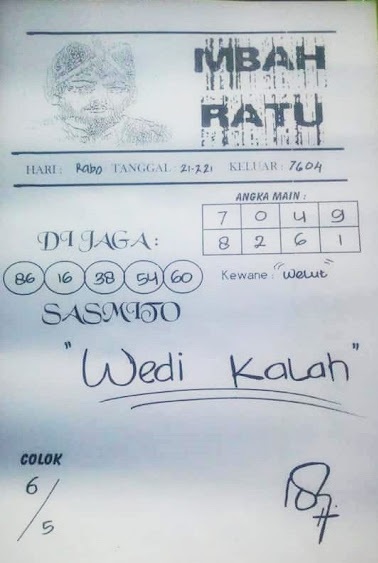 MBAH
RATU
HARI : Rabo TANGGAL : 21-7.21 KELUAR : 7604
ANGKA MAIN :
7 0 4 9
8 2 6 1
DI JAGA :
86 16 38 54 60
Kewane : "Welut"
SASMITO
"Wedi Kalah"
COLOK
6/5